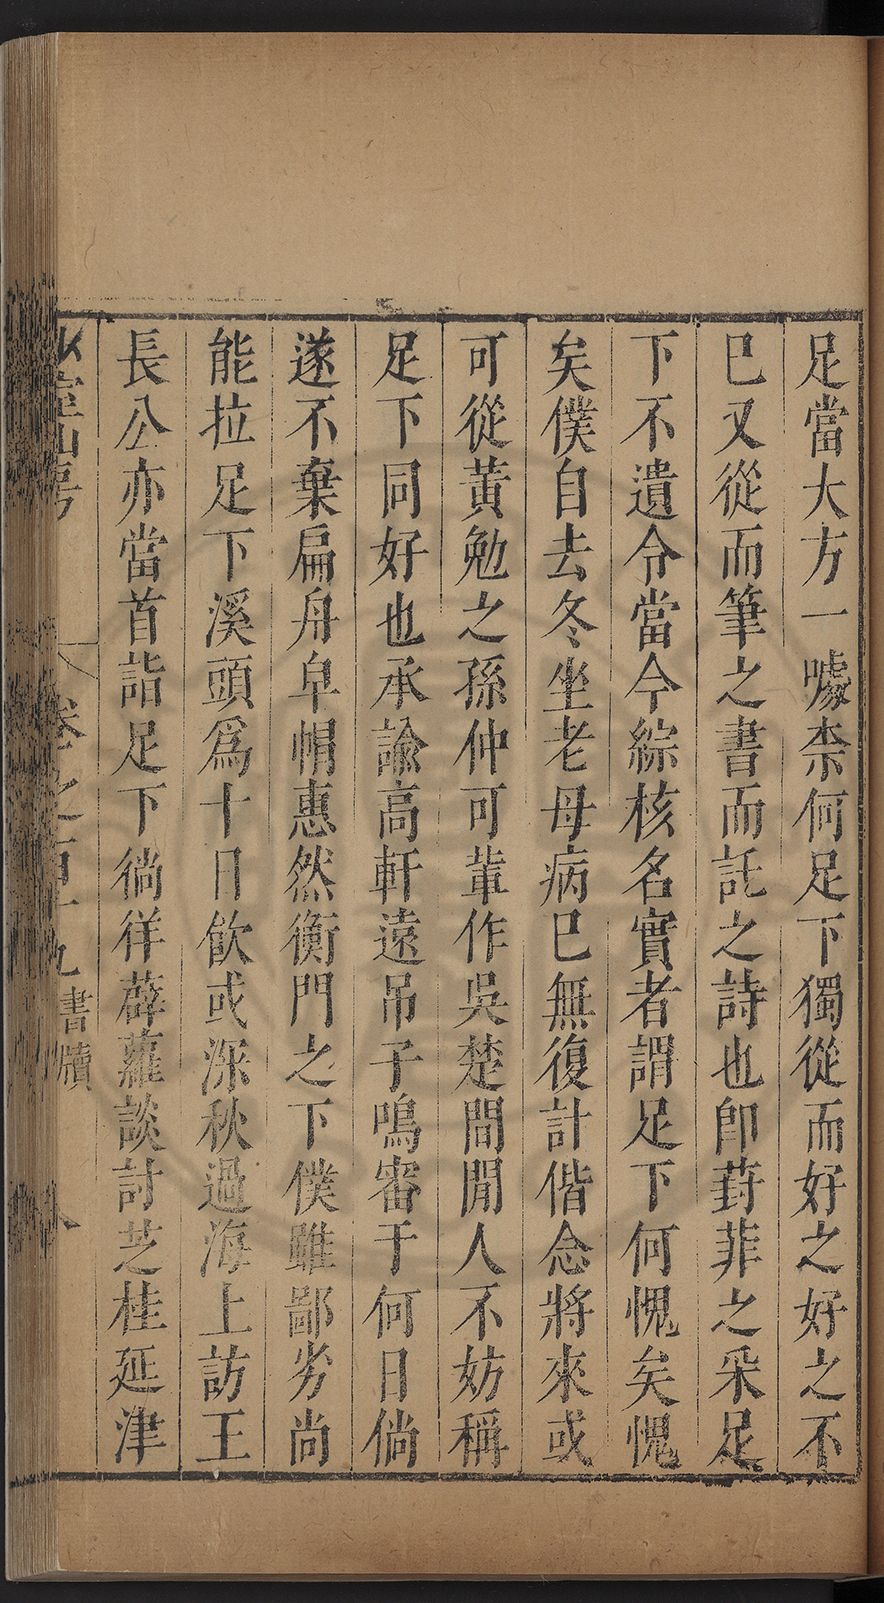 足當大方一噱柰何足下獨從而好之好之不
已又從而筆之書而託之詩也卽葑菲之采足
下不遺令當今綜核名實者謂足下何愧矣愧
矣僕自去冬坐老母病已無復計偕念將來或
可從黃勉之孫仲可軰作吳楚間閒人不妨稱
足下同好也承諭高軒遠吊子鳴審于何日倘
遂不棄扁舟皁帽惠然衡門之下僕雖鄙劣尚
能拉足下溪頭爲十日飮或深秋過海上訪王
長公亦當首詣足下徜徉薜蘿談討芝桂延津
室山房 卷之百十九 書牘 八